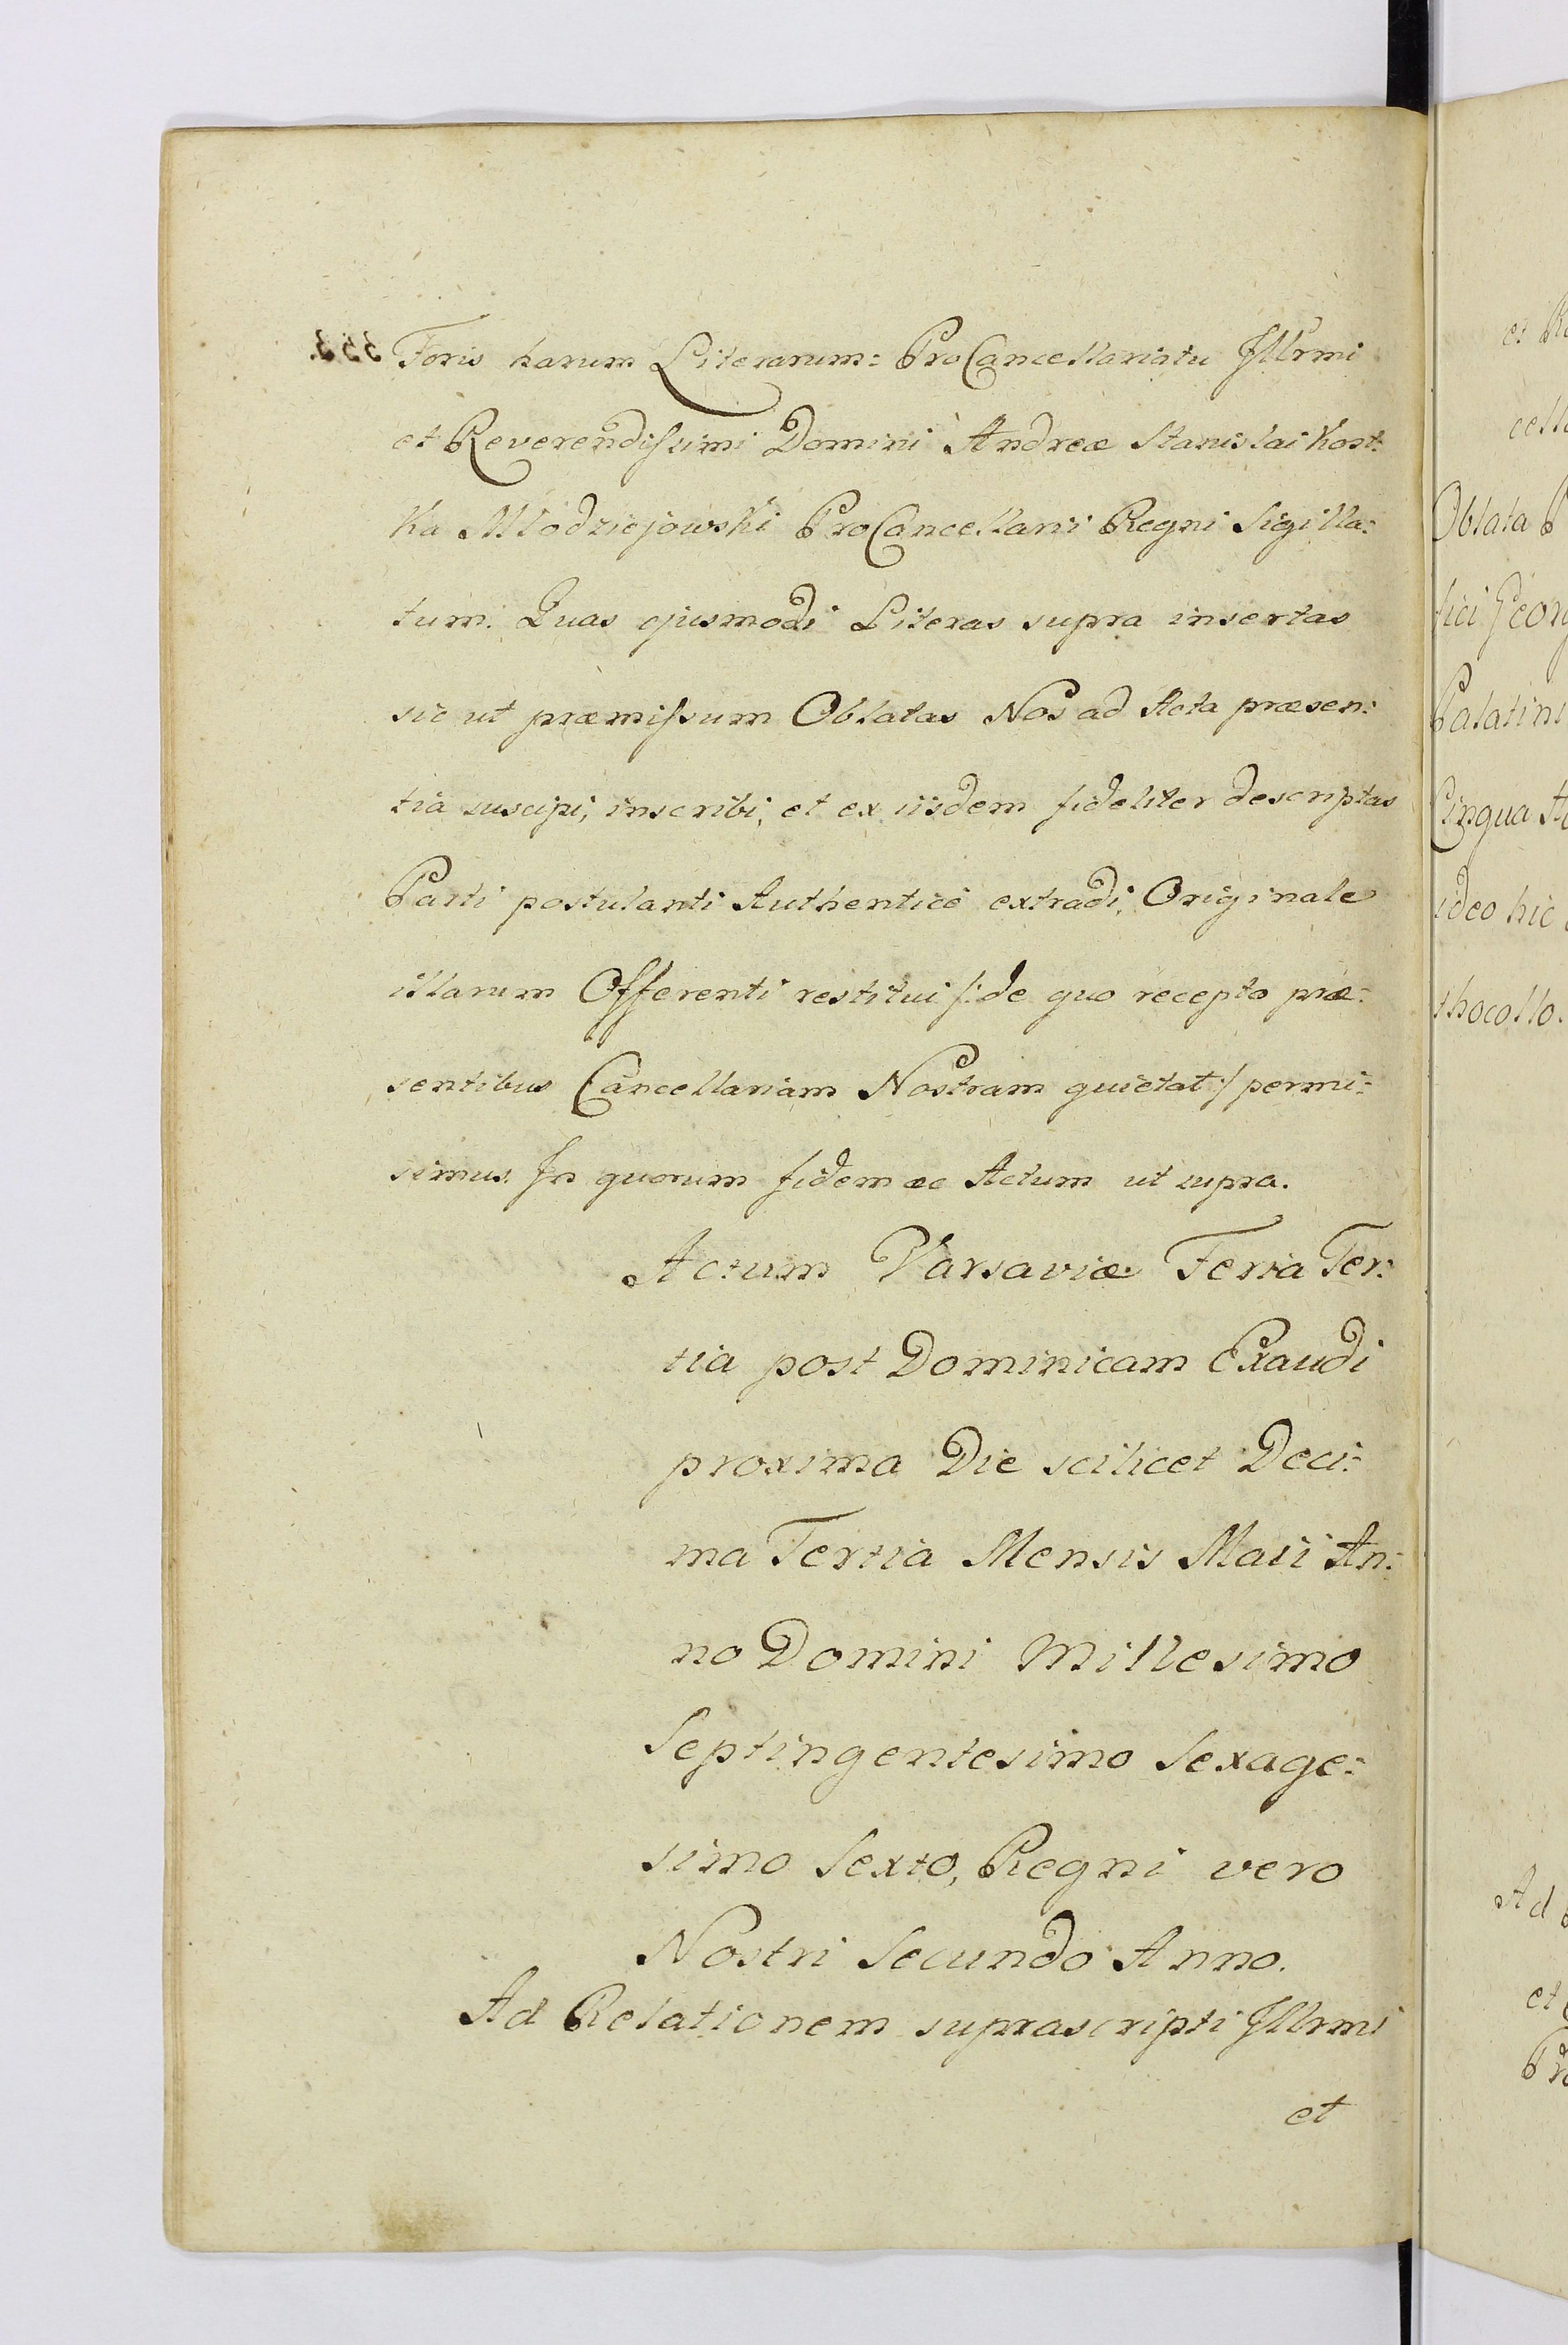 Foris harum Literarum: ProCancellariatu Jllrmi
et Reverendissimi Domini Andreæ Stanislai Kost:
Ka Młodziejowski ProCancellarii Regni Sigilla:
tum. Quas ejusmodi Literas supra insertas
sic ut præmissum Oblatas Nos ad Acta præsen:
tia suscipi, inscribi, et ex iisdem fideliter descriptas
Parti postulanti Authentice extradi, Originale
illarum Offerenti restitui /: de quo recepto præ:
sentibus Cancellariam Nostram quietat :/ permi:
simus. Jn quorum fidem &c Actum ut supra.
Actum Varsaviæ Feria Ter:
tia post Dominicam Exaudi
proxima Die scilicet Deci:
ma Tertia Mensis Maii An:
no Domini Millesimo
Septingentesimo Sexage:
simo Sexto, Regni vero
Nostri Secundo Anno.
Ad Relationem suprascripti Jllrmi
et
Oblata P
fici Georg
Palatini
Lingua
ideo hic
thocollo.
Ad
et